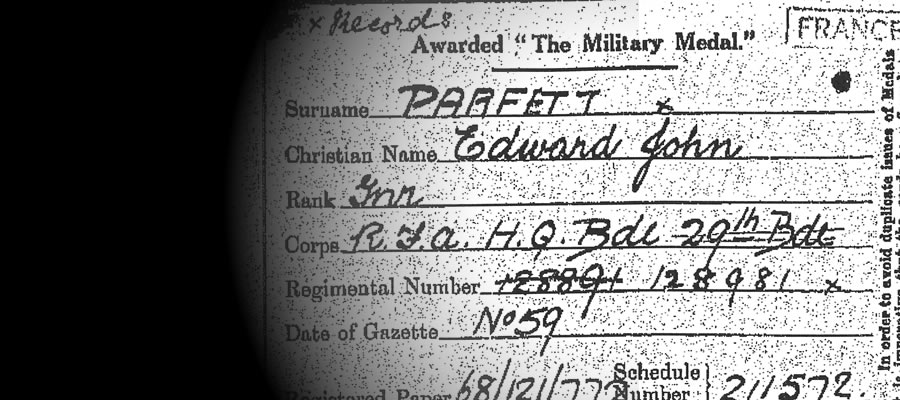 x Records
FRANCE
Awarded "The Military Medal."
Surname PARFETT x
Christian Name Edward John
Rank Gnr
Corps R.F.A. H.Q. Bde 29th Bde
Regimental Number 128891 128981 x
Date of Gazette No 59
Registered Paper 68/121/772
Schedule Number 211572.
In order to avoid duplicate issues of Medals